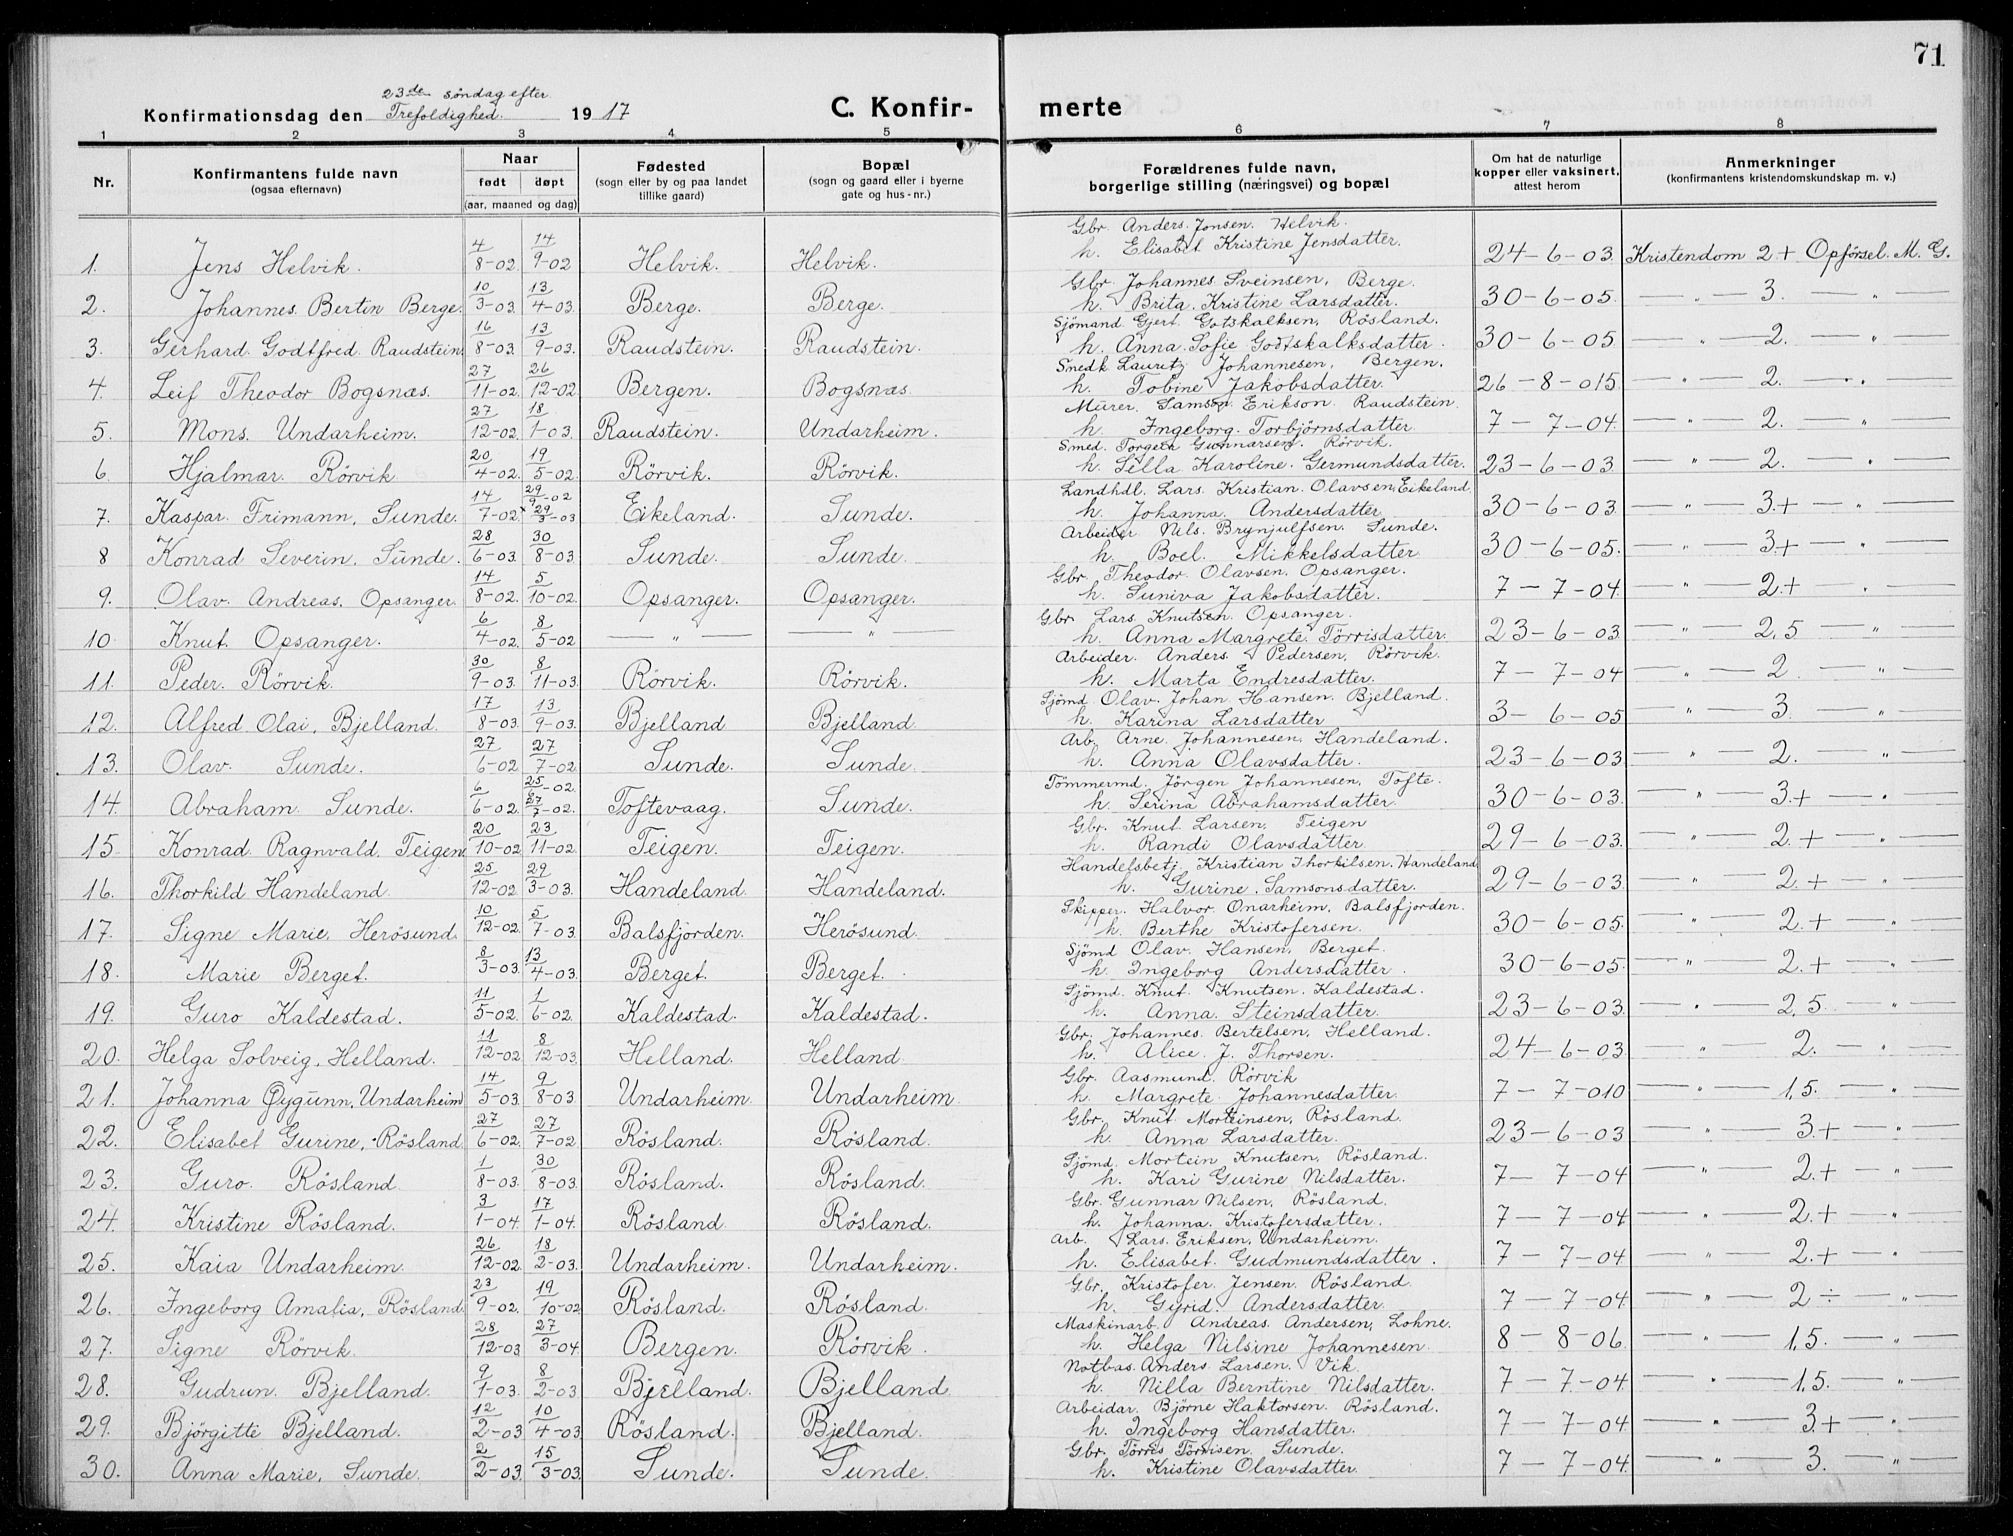 71
23de søndag efter
Konfirmationsdag den Trefoldighed. 1917 C. Konfir- merte
1 2 3 4 5 6 7 8
Nr. Konfirmantens fulde navn (ogsaa efternavn) Naar født døpt (aar, maaned og dag) Fødested (sogn eller by og paa landet tillike gaard) Bopæl (sogn og gaard eller i byerne gate og hus-nr.) Forældrenes fulde navn, borgerlige stilling (næringsvei) og bopæl Om hat de naturlige kopper eller vaksinert, attest herom Anmerkninger (konfirmantens kristendomskundskap m. v.)
Gbr. Anders Jonsen. Helvik.
1. Jens Helvik. 4/8-02 14/9-02 Helvik. Helvik. h. Elisabet Kristine Jensdatter. 24-6-03 Kristendom 2+ Opførsel. M. G.
Gbr. Johannes Sveinsen, Berge.
2. Johannes Bertin Berge. 10/3-03 13/4-03 Berge. Berge. h. Brita Kristine Larsdatter. 30-6-05 — " — 3. — " —
Sjömand Gjert Gotskalksen, Rösland.
3. Gerhard Godtfred Raudstein 16/8-03 13/9-03 Raudstein. Raudstein. h. Anna Sofie Godtskalksdatter. 30-6-05 — " — 2. — " —
Smedk Lauretz Johannesen, Bergen.
4. Leif Theodor Bogsnæs. 27/11-02 26/12-02 Bergen. Bogsnæs h. Tobine Jakobsdatter. 26-8-015 — " — 2. — " —
Mürer. Samson Erikson Raudstein.
5. Mons. Undarheim. 27/12-02 18/1-03 Raudstein. Undarheim. h. Ingeborg Torbjörnsdatter 7-7-04 — " — 2. — " —
Smed. Torgeir Gunnarsen. Rörvik.
6. Hjalmar Rörvik 20/4-02 19/5-02 Rörvik. Rörvik. h. Silla Karoline Germundsdatter. 23-6-03 — " — 2. — " —
Landhdl. Lars Kristian Olavsen, Eikeland
7. Kaspar Frimann, Sunde. 14/7-02 29/9-02 29/3-03 Eikeland. Sunde. h. Johanna Andersdatter 30-6-03 — " — 3.+ — " —
Arbeider Nils Brynjulfsen. Sunde.
8 Konrad Severin, Sunde. 28/6-03 30/8-03 Sunde. Sunde. h. Boel. Mikkelsdatter 30-6-05. — " — 3+ — " —
Gbr. Theodor Olavsen. Opsanger.
9. Olav Andreas, Opsanger. 14/8-02 5/10-02 Opsanger. Opsanger. h. Suniva Jakobsdatter. 7-7-04 — " — 2.+ — " —
Gbr. Lars Knutsen Opsanger.
10. Knut Opsanger. 6/4-02 8/5-02 — " — — " — h. Anna Margrete Törrisdatter. 23-6-03 — " — 2,5 — " —
Arbeider. Anders Pedersen, Rörvik.
11. Peder. Rörvik. 30/9-03 8/11-03 Rörvik. Rörvik. h. Marta Endresdatter. 7-7-04 — " — 2. — " —
Sjömd Olav Johan Hansen. Bjelland.
12. Alfred Olai, Bjelland. 17/8-03 13/9-03 Bjelland Bjelland h. Karina Larsdatter 3-6-05 — " — 3. — " —
Arb. Arne Johannesen, Handeland.
13. Olav. Sunde. 27/6-02 27/7-02 Sunde. Sunde. h. Anna Olavsdatter. 23-6-03 — " — 2. — " —
Tömmermd. Jörgen Johannesen, Tofte.
14. Abraham Sunde. 6/6-02 25/6-02 27/7-02 Toftevaag. Sunde. h. Serina Abrahamsdatter. 30-6-03. — " — 3.+ — " —
Gbr. Knut Larsen, Teigen
15. Konrad Ragnvald, Teigen 20/10-02 23/11-02 Teigen. Teigen. h. Randi Olavsdatter. 29-6-03 — " — 2.+ — " —
Handelsbetj. Kristian Thorkilsen. Handeland
16. Thorkild Handeland. 25/12-02 29/3-03 Handeland Handeland. h. Gurine Samsonsdatter. 29-6-03 — " — 2.+ — " —
Skipper. Halvor Onarheim, Balsfjorden.
17. Signe Marie, Herösund. 10/12-02 5/7-03 Balsfjorden. Herösund. h. Berthe Kristofersen. 30-6-05 — " — 2.+ — " —
Sjömd Olav. Hansen, Berget.
18. Marie Berget. 8/3-03 13/4-03 Berget. Berget. h. Ingeborg Andersdatter. 30-6-05 — " — 2.+ — " —
Sjömd. Knut Knutsen. Kaldestad.
19. Guro Kaldestad. 11/5-02 1/6-02 Kaldestad. Kaldestad. h. Anna Steinsdatter. 23-6-03 — " — 2,5. — " —
Gbr. Johannes Bertelsen, Helland.
20. Helga Solveig, Helland. 11/12-02 8/12-03 Helland. Helland. h. Alice J. Thorsen. 24-6-03 — " — 2. — " —
Gbr. Aasmund Rörvik
21. Johanna Øygunn, Undarheim 14/5-03 9/8-03 Undarheim. Undarheim. h. Margrete Johannesdatter 7-7-010 — " — 1,5. — " —
Gbr. Knut Morteinsen, Rösland.
22. Elisabet Gurine, Rösland 27/6-02 27/7-02 Rösland. Rösland. h. Anna Larsdatter. 23-6-03 — " — 3.+ — " —
Sjömd. Mortein Knutsen, Rösland.
23. Guro. Rösland 1/8-03 30/8-03 Rösland. Rösland. h. Kari Gurine Nilsdatter. 7-7-04 — " — 2.+ — " —
Gbr. Gunnar Nilsen, Rösland.
24. Kristine Rösland. 3/1-04 17/1-04. Rösland Rösland. h. Johanna Kristofersdatter. 7-7-04 — " — 2.+ — " —
Arb. Lars Eriksen, Undarheim.
25. Kaia Undarheim 26/12-02 18/2-03 Undarheim. Undarheim. h. Elisabet Gudmundsdatter. 7-7-04 — " — 2.+ — " —
Gbr. Kristofer Jensen. Rösland
26. Ingeborg Amalia, Rösland 23/9-02 19/10-02 Rösland. Rösland. h. Gyrid Andersdatter 7-7-04 — " — 2 ÷ — " —
Maskinarb. Andreas Andersen, Lohne.
27. Signe Rörvik. 28/12-03 27/3-04 Bergen. Rörvik. h. Helga Nilsine Johannesen. 8-8-06 — " — 1,5. — " —
Notbas. Anders Larsen. Vik.
28. Gudrun Bjelland. 9/1-03 8/2-03 Bjelland. Bjelland h. Nilla Berntine Nilsdatter. 7-7-04 — " — 1,5. — " —
Arbeidar. Bjørne Haktorsen. Rösland.
29. Bjørgitte Bjelland. 12/2-03 10/4-03 Rösland. Bjelland. h. Ingeborg Hansdatter. 7-7-04 — " — 3.+ — " —
Gbr. Törres Törrisen. Sunde.
30. Anna Marie, Sunde. 2/2-03 15/3-03 Sunde. Sunde. h. Kristine Olavsdatter. 7-7-04. — " — 3. — " —